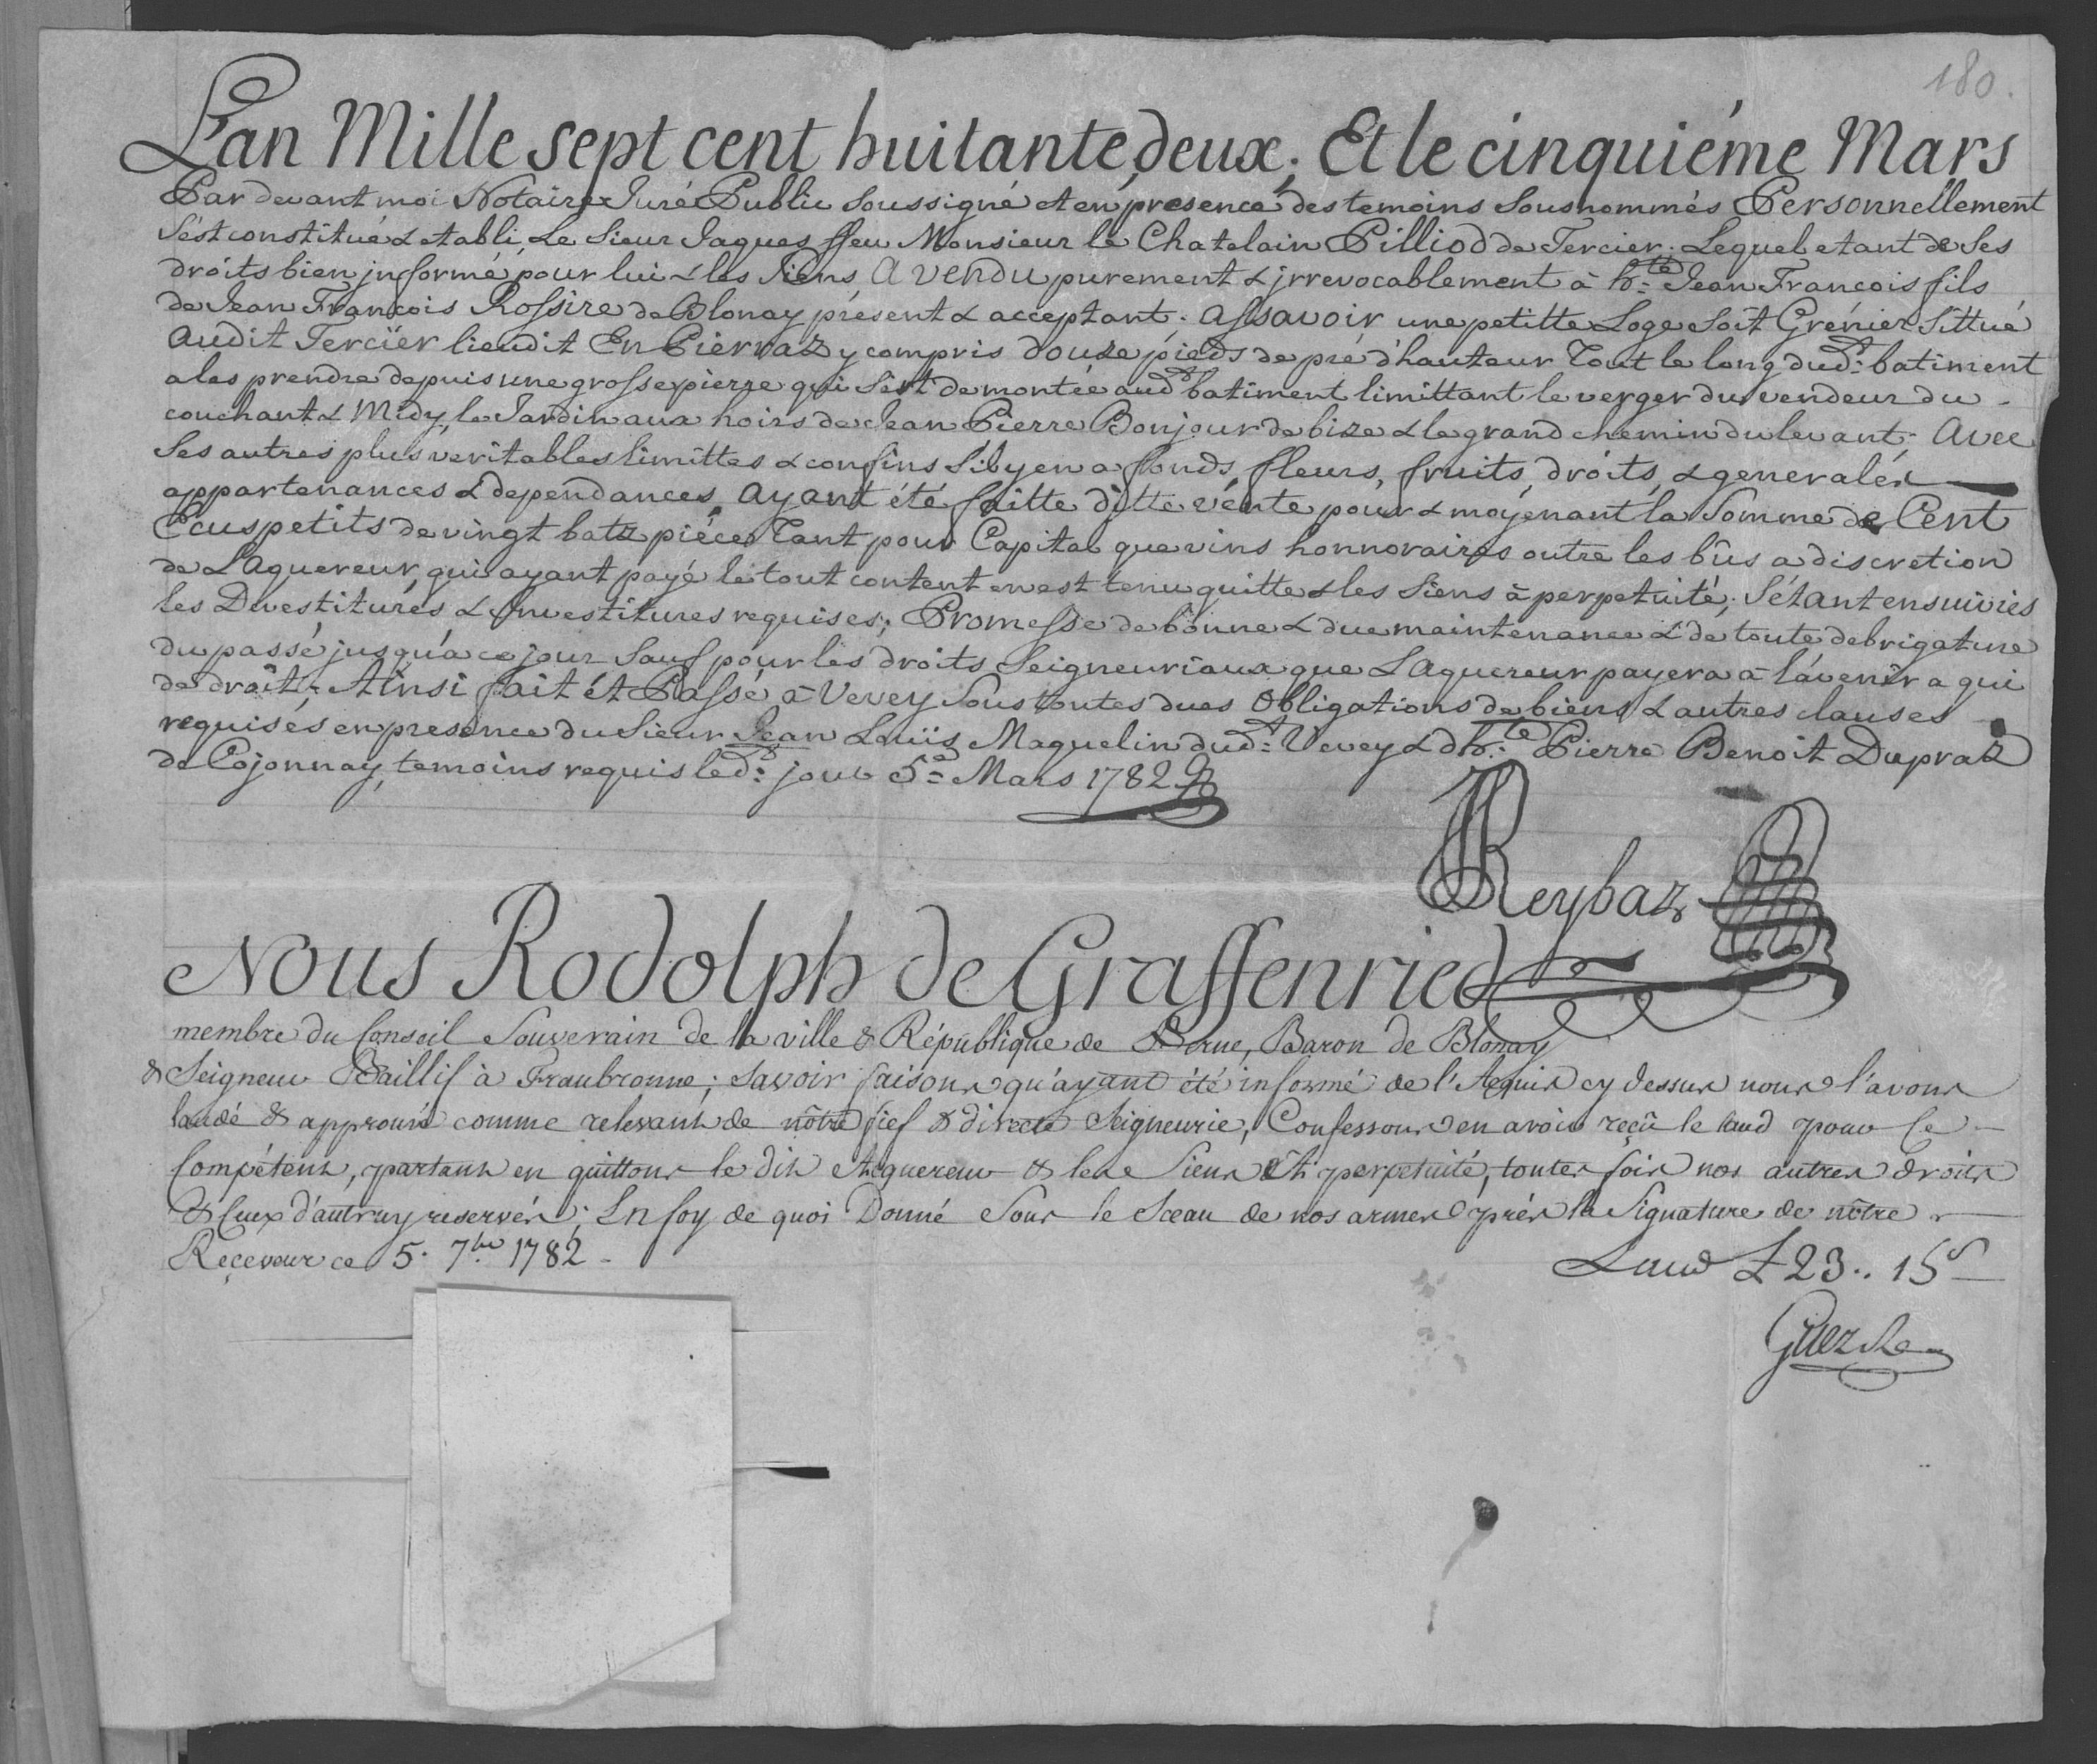 180.
L'an Mille sept cent huitante deux; Et le cinquiéme Mars
Par devant moi Notaire Juré Public soussigné et en présence des temoins sous nommés Personnellement
s'est constitué & etabli, Le Sieur Jaques ffeu Monsieur le Chatelain Pilliod de Tercier. Lequel etant de ses
droits bien jnformé, pour lui & les siens, a vendu purement & jrrevocablement à h:te Jean François fils
de Jean François Rossire de Blonay présent & acceptant. assavoir une petitte Loge soit Grénier sittué
audit Tercïer lieudit En Pierraz y compris douze pieds de pré d'hauteur Tout le long dud:t batiment
a les prendre depuis une grosse pierre qui sert de montée aud:t batiment limittant le verger du vendeur du -
couchant & Midy, le Jardin aux hoirs de Jean Pierre Bonjour de bize & le grand chemin du levant; avec
ses autres plus veritables limittes & confins s'il y en a fonds, fleurs, fruits, droits, & generales
appartenances & dependances, ayant été faitte ditte vente pour & moyenant la Somme de Cent
Ecus petits de vingt batz piéce Tant pour Capital que vins honnoraires outre les bûs a discretion
de Laquereur, qui ayant payé le tout content en est tenu quitte & les siens à perpetuité; S'étant ensuivies
les Devestitures & Jnvestitures requises; Promesse de bonne & due maintenance & de toute debrigature
du passé jusqu'à ce jour sauf pour les droits Seigneuriaux que Laquereur payera à l'avenir a qui
de droit; Ainsi fait et Passé à Vevey sous toutes dues obligations de biens & autres clauses
requises en presence du Sieur Jean Louïs Maquelin dud:t Vevey & d'h:te Pierre Benoit Dupraz
de Cojonnay, temoins requis led:t jour 5:e Mars 1782
Reybaz
Nous Rodolph de Graffenried
membre du Conseil Souverain de la ville & République de Berne, Baron de Blonay
& Seigneur Baillif à Fraubronne; savoir faisons qu'ayant été informé de l'Aquis cy dessus nous l'avons
laudé & approuvé comme relevant de nôtre fief & directe Seigneurie, Confessons en avoir reçû le laud pour ce -
Compétent, partant en quittons le dit Aquereur & les Siens à perpetuité, toutes fois nos autres droits
& Ceux d'autruy reservés; En foy de quoi Donné Sous le Sceau de nos armes près la Signature de nôtre
Reçeveur ce 5. 7.bre 1782 -
Laud £ 23.. 15 s